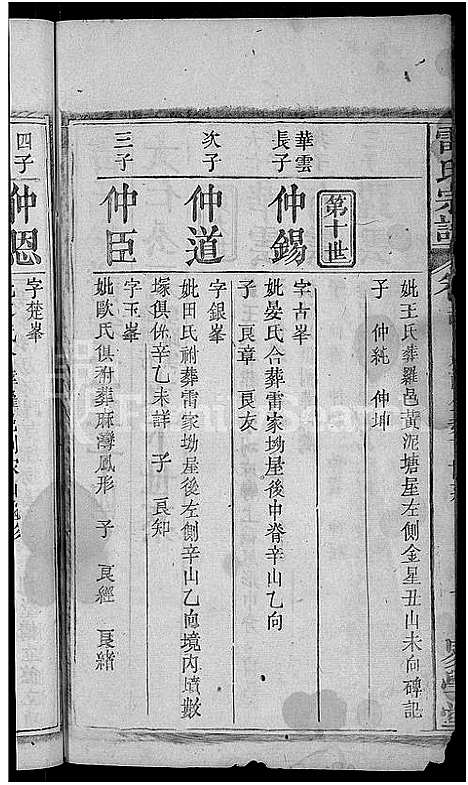 雷氏宗譜
妣王氏葬羅邑黃泥塘屋左側金星丑山未向碑記
子 仲純 仲坤
第十世
華雲長子
仲錫
字古峯
妣晏氏合葬雷家坳屋後中脊辛山乙向
子 良章 良友
次子
仲道
字銀峯
妣田氏祔葬雷家坳屋後左側辛山乙向境內墳數
塚俱係辛乙未詳 子 良知
三子
仲臣
字玉峯
妣歐氏俱祔葬麻灣鳳形 子 良經 良緒
四子
仲恩
字楚峯